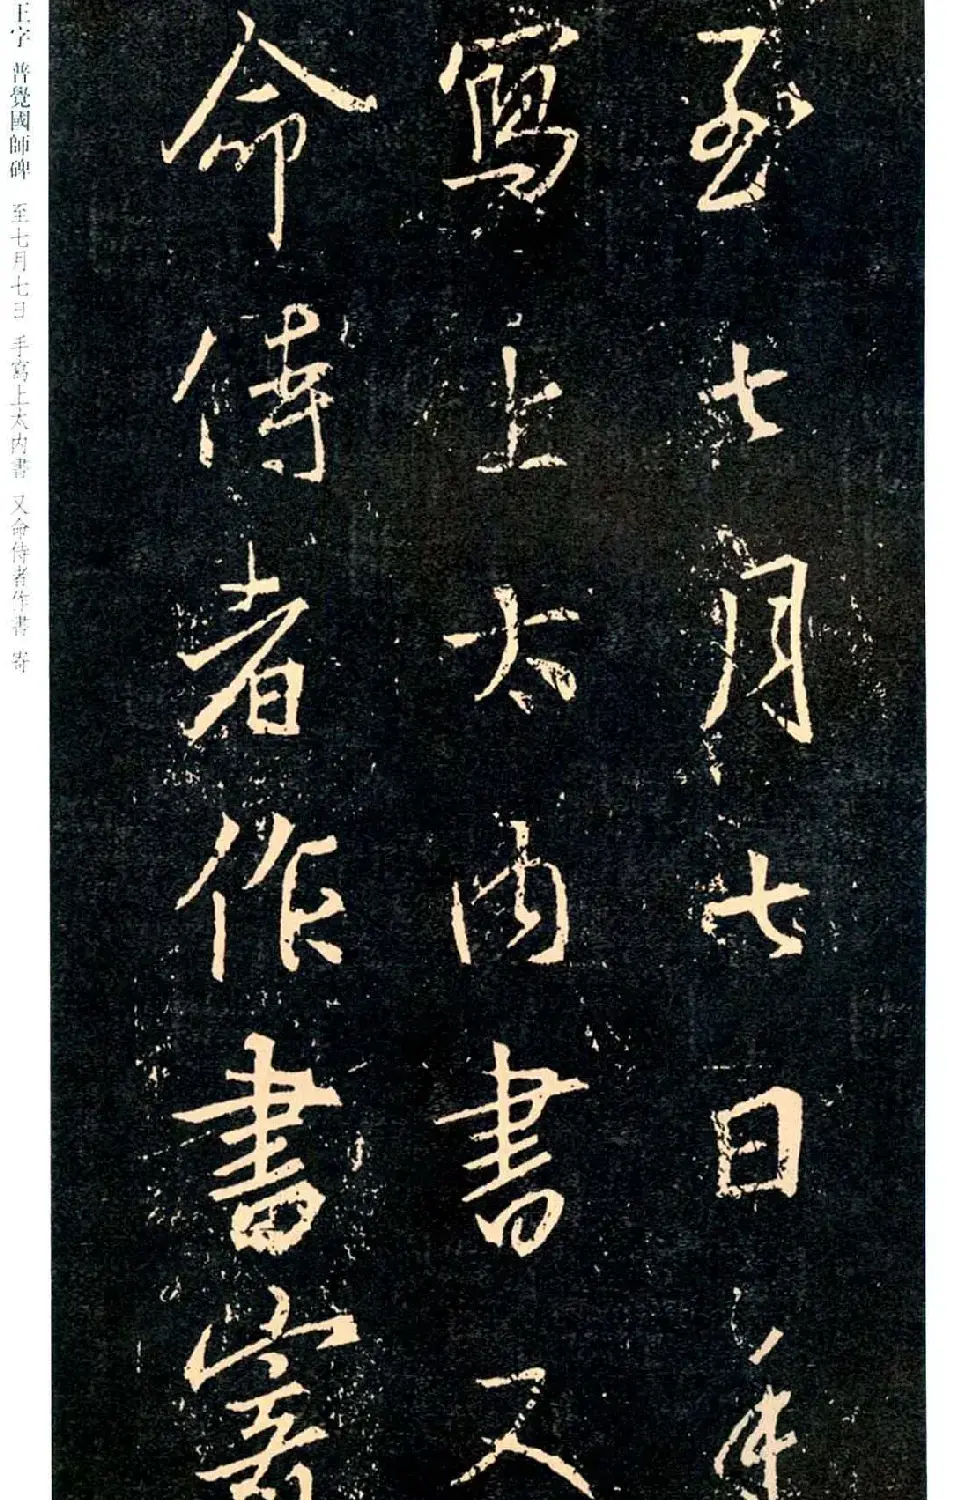 至七月七日手
寫上太內書又
命侍者作書寄
王字 普覺國師碑 至七月七日 手寫上太內書 又命侍者作書 寄